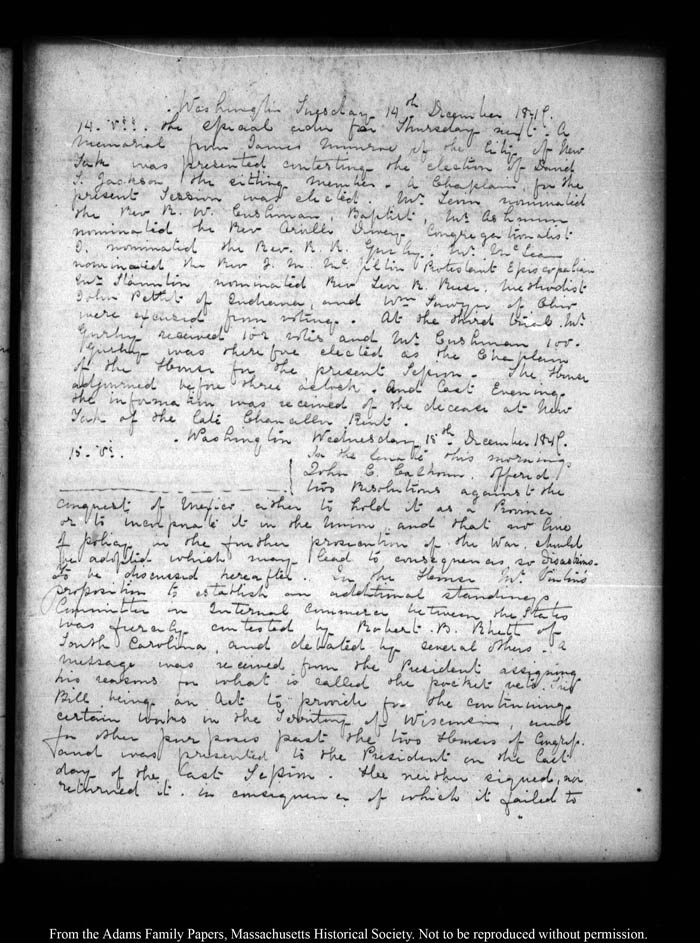 Washington Tuesday 14th December 1847.
14. VII. the special order for Thursday next. A
Memorial from James Monroe of the City of New
York was presented contesting the election of David
S. Jackson, the sitting member. A Chaplain for the
present Session was elected. Mr. nominated
the Rev R. W. Cushman, Baptist, Mr. Ashmun
nominated the Rev Orville Dewey Congregationalist
nominated the Rev. R. R. Gurley. Mr. McLean
nominated the Rev J. M. McJilton Protestant Episcopalian
Mr. Hamlin nominated Rev Levi R. Reese, Methodist
John Pettit of Indiana, and Wm Sawyer of Ohio
were excused from voting. At the third Mr.
Gurley received 102 votes and Mr. Cushman, 100.
Gurley was therefore elected as the Chaplain
of the House for the present Session. The House
adjourned before three o'clock. And last Evening
the information was received of the decease at New
York of the late Chancellor Kent.
Washington Wednesday 15th December 1847.
15. VI. In the Senate this morning
John C. Calhoun, offered
two Resolutions against the
conquest of Mexico either to hold it as a Province
or to incorporate it in the Union, and that no line
of policy in the further prosecution of the War, should
be adopted which may lead to consequences so disastrous.
To be discussed hereafter. In the House Mr. Vinton's
proposition to establish an additional standing
Committee on Internal Commerce between the States
was fiercely contested by Robert. B. Rhett of
South Carolina, and debated by several others. A
message was received from the President assigning
his reasons for what is called the pocket veto. The
Bill being an Act to provide for the continuing
certain works in the Territory of Wisconsin, and
for other purposes past the two Houses of Congress.
and was presented to the President on the last
day of the last Session. He neither signed, nor
returned it. in consequence of which it failed to
From the Adams Family Papers, Massachusetts Historical Society. Not to be reproduced without permission.